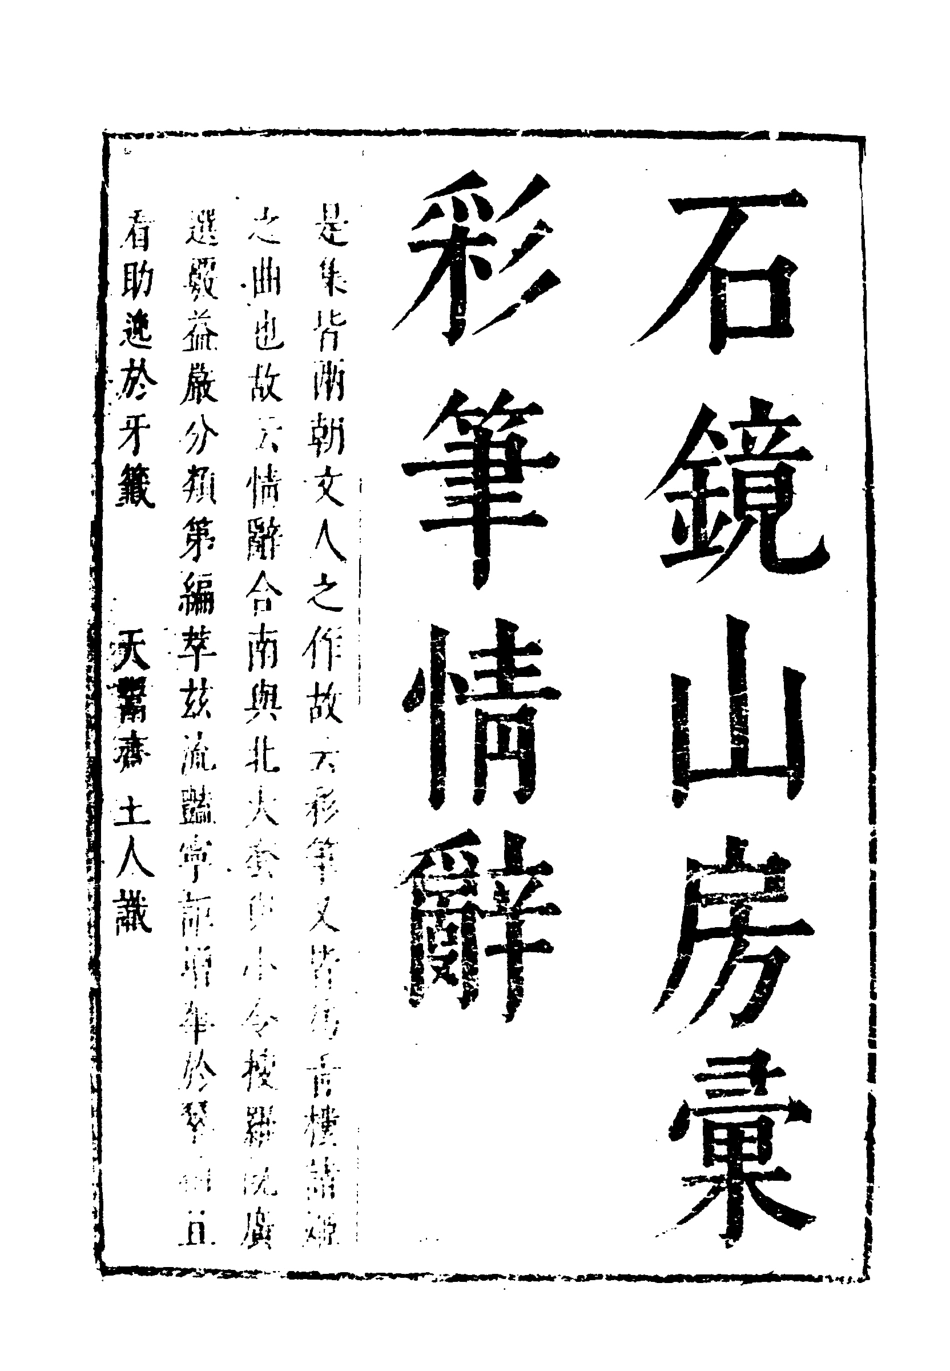 石鏡山房彙
彩筆情辭
是集皆兩朝文人之作故云彩筆又皆為青樓諸姬
之曲也故云情辭合南與北大套與小令搜羅既廣
選嚴益嚴分類第編萃玆流豔寧詎增華於琴且
看助逸於牙籤
天齋士人識